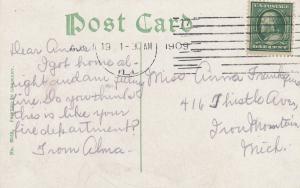 Post Card
19 1-30AM 1909
Dear Anna
I got home al-
right and am
fine. Do you think
this is like your
fire department?
From Alma-
Miss Anna
416 Thistle Ave,
Iron Mountain
Mich.